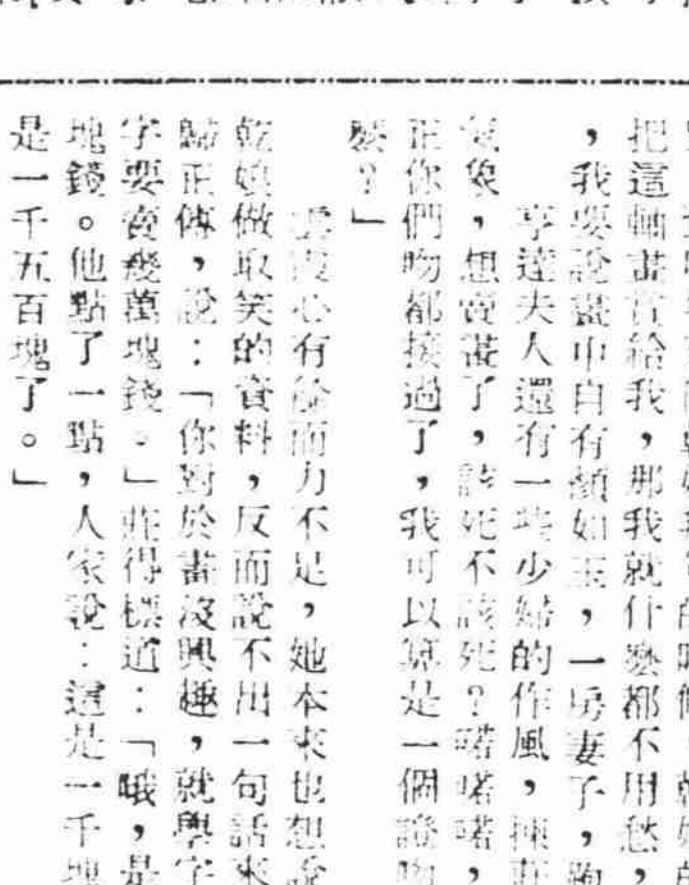 把這軸畫賞給我，那我就什麼都不用愁，
，我要說畫中自有顏如玉，一房妻子，
亨達夫人還有一些少婦的作風，
氣象，想賣畫了，該死不該死？喏喏喏，
正你們吻都接過了，我可以算是一個證
麼？」
心有餘而力不足，她本來也想說
乾娘做取笑的資料，反而說不出一句話來
歸正傳，說：「你對於畫沒興趣，就學字
字要賣幾萬塊錢。」莊得標道：「哦，是
塊錢。他點了一點，人家說：這是一千塊
是一千五百塊了。」